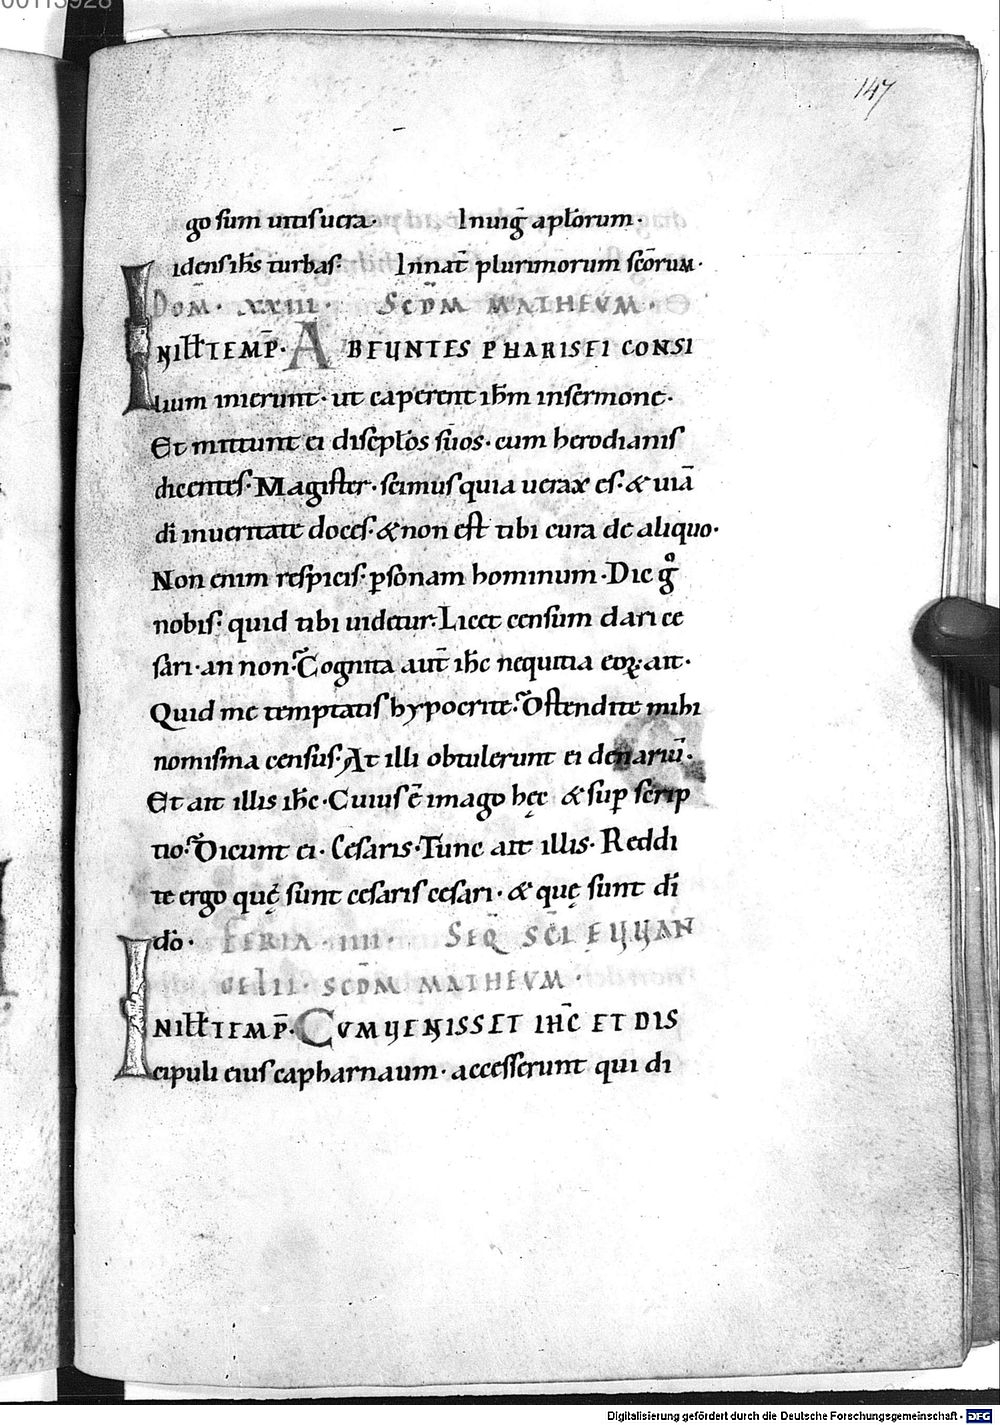 00113928
147
go sum uitis uera· In uig̅ aplo̅rum·
idens ih̅s turbas· In nat̅ plurimorum sco̅rum·
Dom̅· XXIII· Scd̅m Matheum·
In illt̅emp̅· Abeuntes pharisei consi
lium inierunt· ut caperent ih̅m in sermone·
Et mittunt ei discip̅los suos· cum herodianis
dicentes· Magister· scimus quia uerax es· & uia̅
di̅ in ueritate doces· & non est tibi cura de aliquo·
Non enim respicis· p̲sonam hominum· Dic gͦ
nobis· quid tibi uidetur· Licet censum dari ce
sari· an non· Cognita aut̅ ih̅c nequitia eoꝝ· ait·
Quid me temptatis hypocrite· Ostendite mihi
nomisma census· At illi obtulerunt ei denariu̅·
Et ait illis ih̅c· Cuius e̅ imago hęc & sup̲ scrip
tio· Dicunt ei· Cesaris· Tunc ait illis· Reddi
te ergo quę sunt cesaris cesari· & quę sunt di̅
do̅· Feria· IIII· Seq̅ sc̅i euuan
gelii· scd̅m Matheum·
In illt̅emp̅· Cum uenisset ih̅c et dis
cipuli eius capharnaum· accesserunt qui di
Digitalisierung gefördert durch die Deutsche Forschungsgemeinschaft - DFG